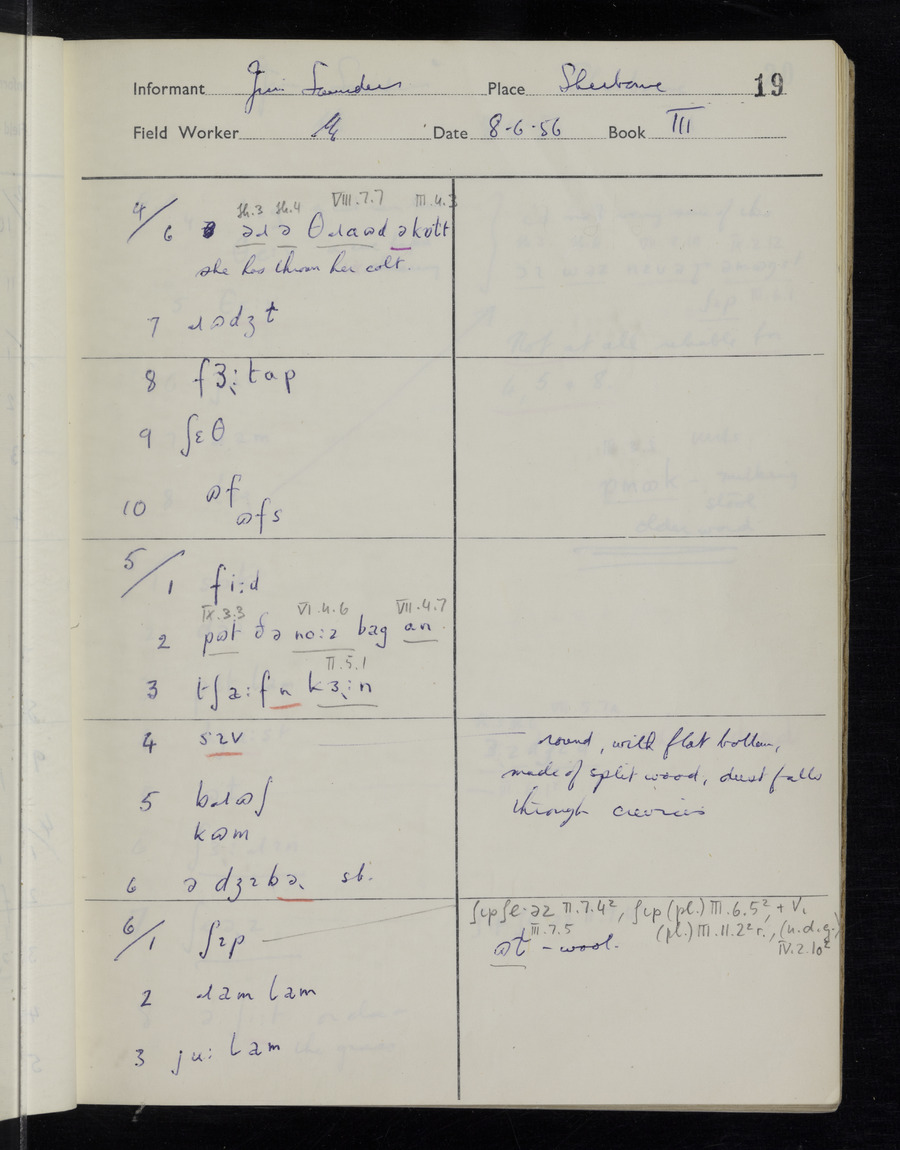 Informant Jim Saunders Place Sherborne 19
Field Worker Date 8-6-56 Book III
Sh.3 Sh.4 VIII.7.7 III.4.3
4/6 əɹ ə θɹaɷd əkɒɫt
she has thrown her colt.
7 ɹɷdʒt
8 fɜ˞ːtap
9 ʃɛθ
10 ɷf
ɷfs
5/1 fiːd
IX.3.3 VI.4.6 VII.4.7
2 pɷt ðə noːz bag an
II.5.1
3 tʃəːf n kɜ˞ːn
4 sɪv
round, with flat bottom,
made of split wood, dust falls
through crevices
5 bɹɷʃ
kɷm
6 ə dʒɪbə˞ sb.
6/1 ʃɪp
ʃɪpʃe·əz II.7.4², ʃɪp (pl.) III.6.5², + V.
III.7.5 (pl.) III.11.2² r., (n.d.g.)
ɷt - wool. IV.2.10²
2 ɹam lam
3 juː lam